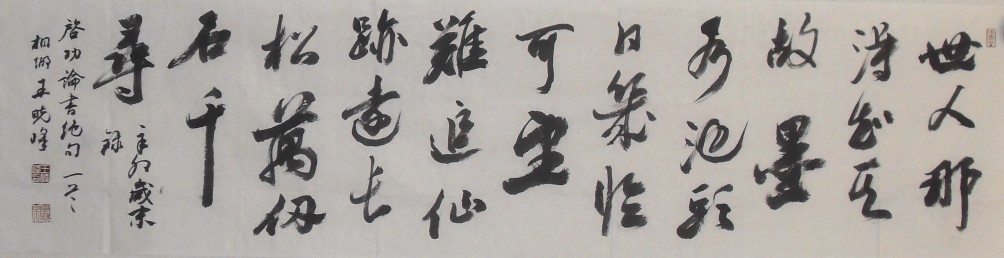 世人那
得知其
故墨
水池頭
日幾臨
可望
難追仙
跡遠長
松萬仞
石千
尋
辛卯歲末
錄
啓功論書絕句一首
王曉峰